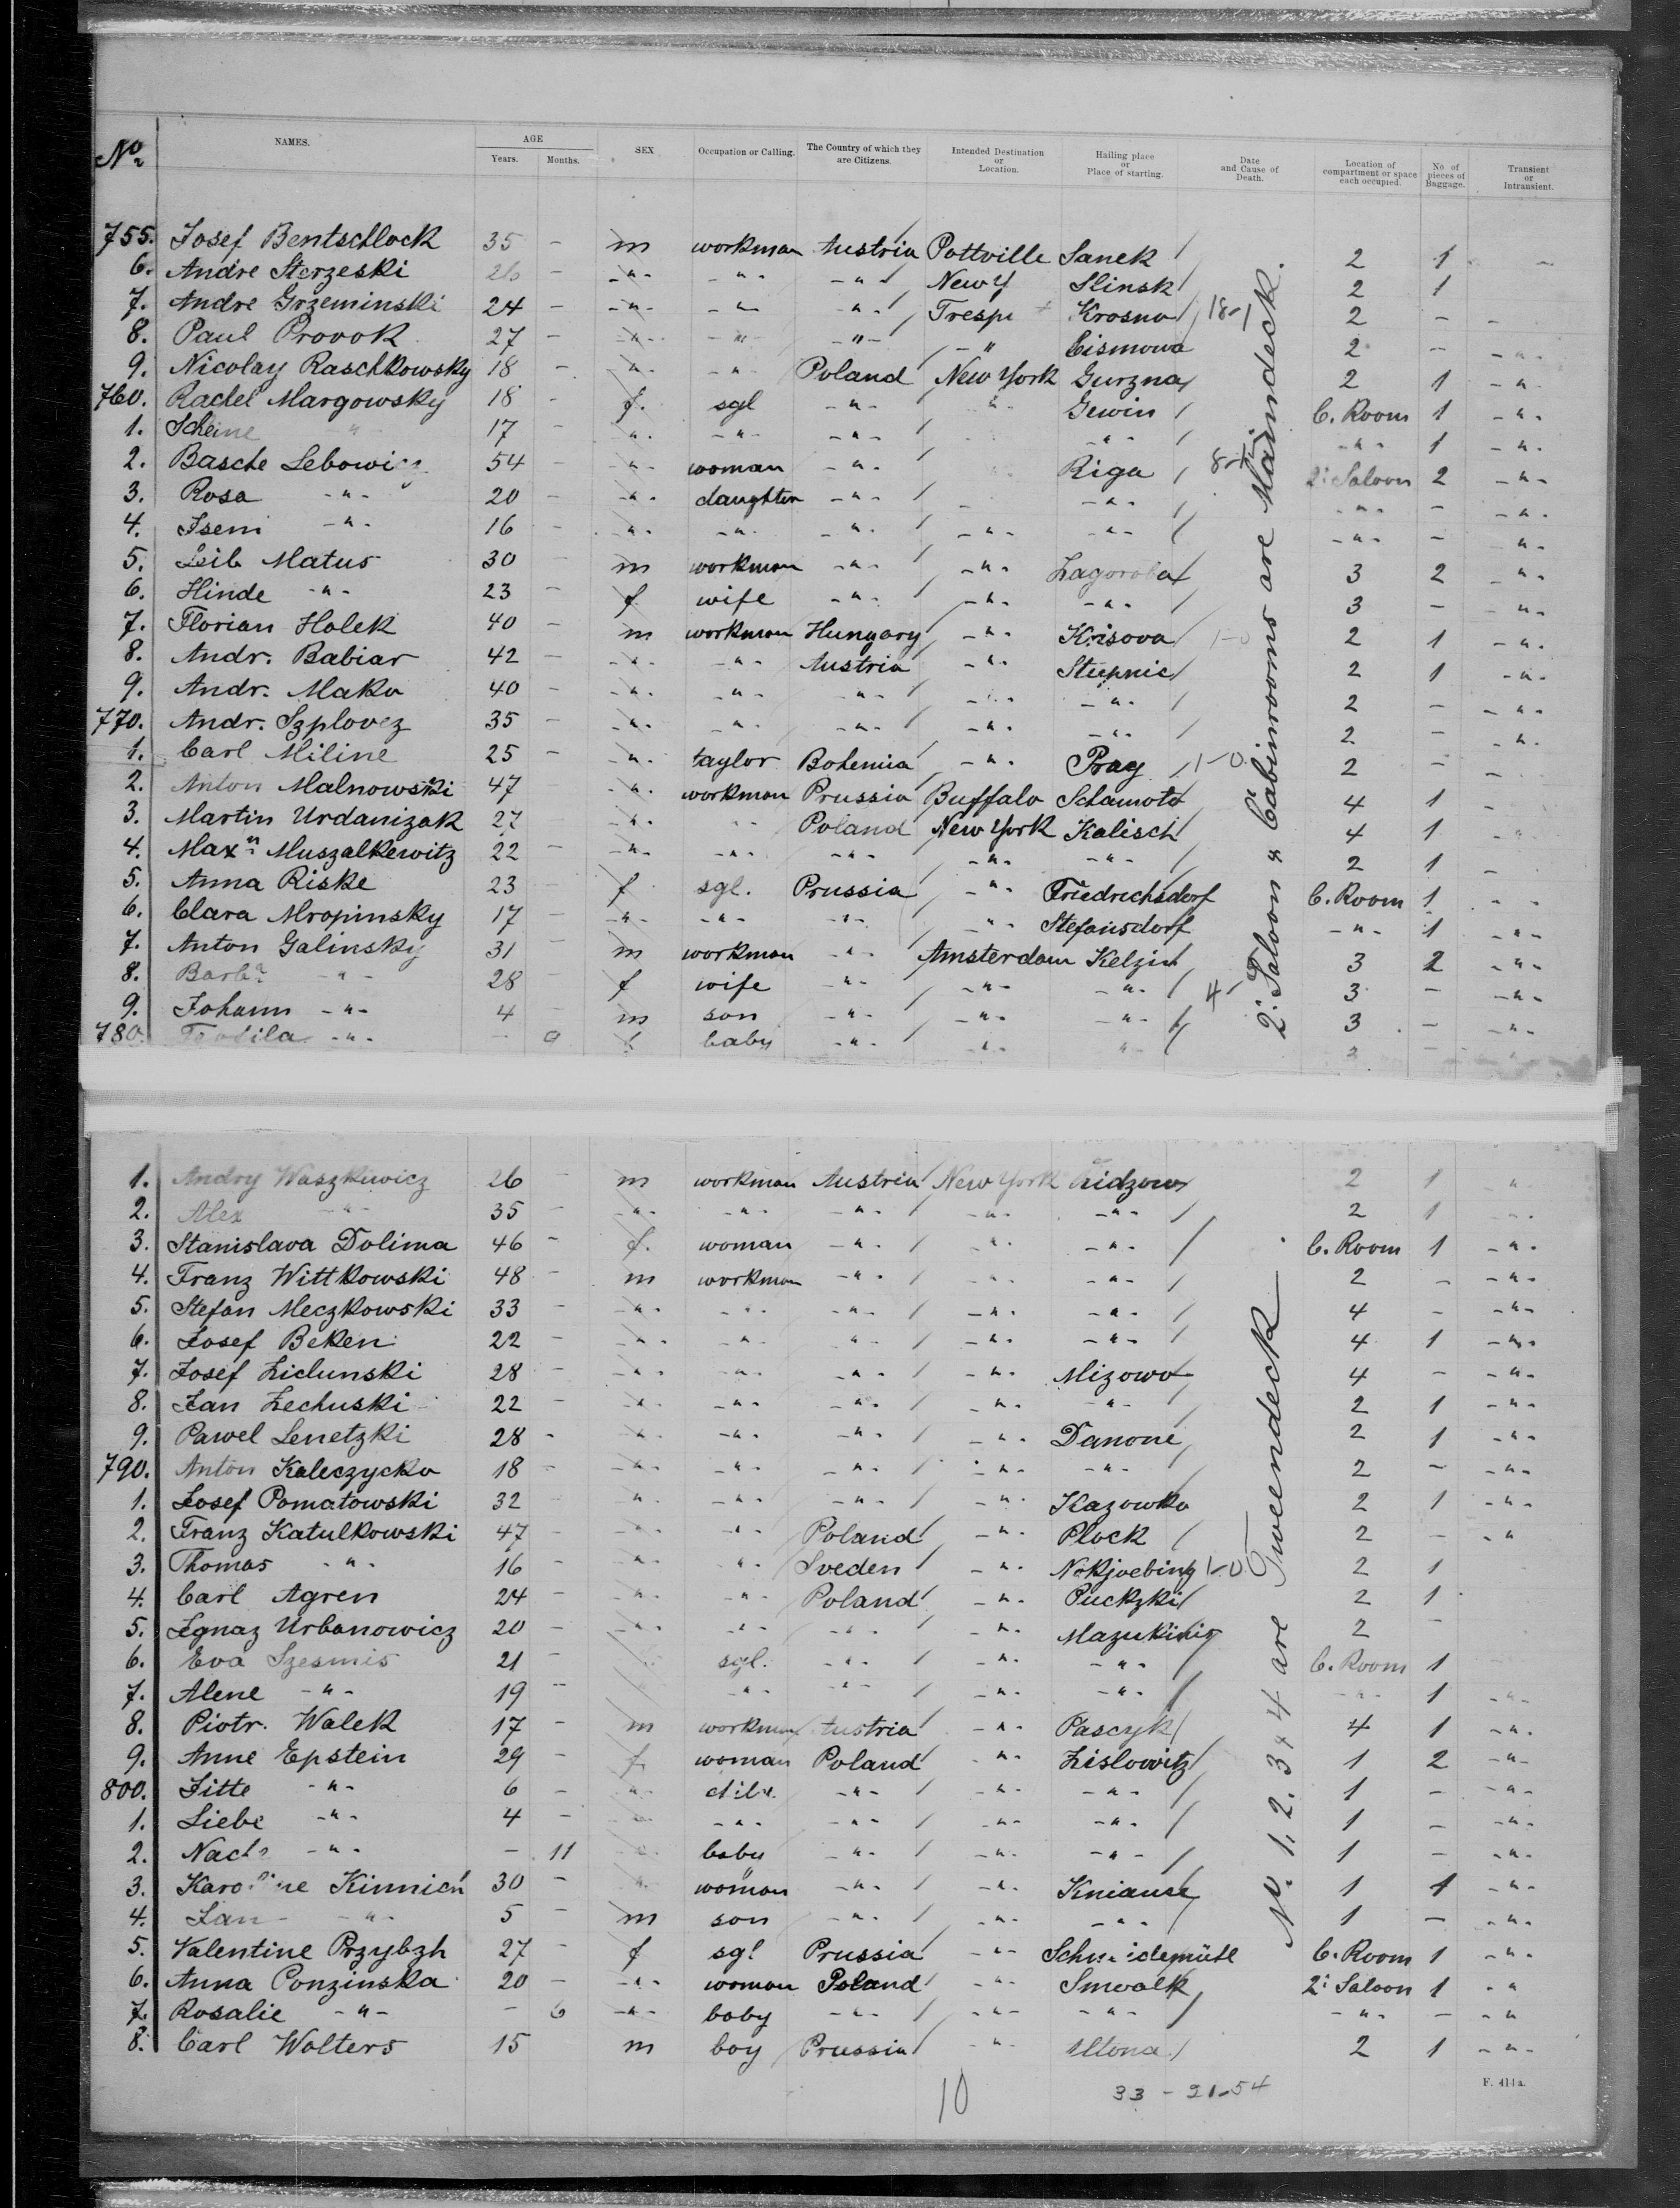 No. NAMES. AGE Years. Months. SEX Occupation or Calling. The Country of which they are Citizens. Intended Destination or Location. Hailing place or Place of starting. Date and Cause of Death. Location of compartment or space each occupied. No of pieces of Baggage. Transient or Intransient.
755. Josef Bentschlock 35 - m workman Austria Pottville Sanek 2 1 -
6. Andre Sterzeski 26 - -"- -"- -"- New Y Slinsk 2 1
7. Andre Grzeminski 24 - -"- -"- -"- Tresp Krosno 18-1 2 - -
8. Paul Provok 27 - -"- -"- -"- -"- Cismowa 2 - -"-
9. Nicolay Raschkowsky 18 - -"- -"- Poland New York Gurzna 2 1 -"-
760. Rachel Margowsky 18 - f. sgl -"- -"- Gewin C. Room 1 -"-
1. Scheine " 17 - -"- -"- -"- -"- -"- 1 -"-
2. Basche Lebowicz 54 - -"- woman -"- Riga 2: Saloon 2 -"-
3. Rosa -"- 20 - -"- daughter -"- -"- -"- - -"-
4. Iseni -"- 16 - -"- -"- -"- -"- -"- -"- - -"-
5. Leib Matus 30 - m workman -"- -"- 3 2 -"-
6. Hinde -"- 23 - f wife -"- -"- -"- 3 - -"-
7. Florian Holek 40 - m workman Hungary -"- Krisova 1-0 2 1 -"-
8. Andr. Babiar 42 - -"- -"- Austria -"- Stupnic 2 1 -"-
9. Andr. Mako 40 - -"- -"- -"- -"- -"- 2 - -"-
770. Andr. Szplovez 35 - -"- -"- -"- -"- -"- 2 - -"-
1. Carl Miline 25 - -"- taylor Bohemia -"- Prag 1-0 2 - -
2. Anton Malnowski 47 -"- workman Prussia Buffalo Schamoto 4 1 -
3. Martin Urdanizak 27 -"- -"- Poland New York Kalisch 4 1 -"-
4. Maxn Muszalkewitz 22 - -"- -"- -"- -"- -"- 2 1 -
5. Anna Riske 23 - f sgl. Prussia -"- Friedrichsdorf C. Room 1 - -
6. Clara Mropinsky 17 - -"- -"- -"- -"- Stefansdorf -"- 1 -"-
7. Anton Galinsky 31 - m workman -"- Amsterdam Kelzin 3 2 -"-
8. Barba -"- 28 f wife -"- -"- -"- 4- 3 - -"-
9. Johann -"- 4 - m son -"- -"- -"- 3 - -"-
780. Teofila -"- - 9 f baby -"- -"- -"- 3 - "
2: Saloon & Cabinrooms are Maindeck.
1. Andry Waszkiwicz 26 - m workman Austria New York Ridzow 2 1 "
2. Alex -"- 35 - -"- -"- -"- -"- -"- 2 1 -"-
3. Stanislava Dolima 46 - f. woman -"- -"- -"- C. Room 1 -"-
4. Franz Wittkowski 48 - m workman -"- -"- -"- 2 - -"-
5. Stefan Meczkowski 33 - -"- -"- -"- -"- -"- 4 - -"-
6. Josef Beken 22 - -"- -"- -"- -"- -"- 4 1 -"-
7. Josef Zielunski 28 - -"- -"- -"- -"- Mizowo 4 - -"-
8. Jan Zechuski 22 - -"- -"- -"- -"- -"- 2 1 -"-
9. Pawel Lenetzki 28 - -"- -"- -"- -"- Danone 2 1 -"-
790. Anton Kaleczycko 18 - -"- -"- -"- -"- -"- 2 - -"-
1. Josef Pomatowski 32 -"- -"- -"- -"- Kazowko 2 1 -"-
2. Franz Katulkowski 47 -"- -"- Poland -"- Plock 2 - -"
3. Thomas -"- 16 -"- -"- Sveden -"- Nokjoebing 1-0 2 1
4. Carl Agren 24 - -"- -"- Poland -"- Puckzki 2 1
5. Ignaz Urbanowicz 20 - -"- -"- -"- -"- 2 -
6. Eva Szesmis 21 - sgl. -"- -"- -"- C. Room 1
7. Alene -"- 19 - -"- -"- -"- -"- -"- 1 -"-
8. Piotr. Walek 17 - m workman Austria -"- Pascyk 4 1 -"-
9. Anne Epstein 29 - f. woman Poland -"- Zislowitz 1 2 -"-
800. Zitte -"- 6 - -"- child. -"- -"- -"- 1 - -"-
1. Liebe -"- 4 - -"- -"- -"- -"- -"- 1 - -"-
2. -"- - 11 -"- baby -"- -"- -"- 1 - -"-
3. Karoline Kinnich 30 - " woman -"- -"- Kniause 1 1 -"-
4. Jan -"- 5 - m son -"- -"- -"- 1 - -"-
5. Valentine Przybzh 27 - f sgl Prussia -"- Schneidemühl C. Room 1 -"-
6. Anna Conzinska 20 - -"- woman Poland -"- Smwalk 2: Saloon 1 -"
7. Rosalie -"- - 6 -"- baby -"- -"- -"- -"- - -"
8. Carl Wolters 15 m boy Prussia -"- Altona 2 1 -"-
No. 1, 2, 3 & 4 are Tweendeck
10 33 - 21-54
F. 411a.